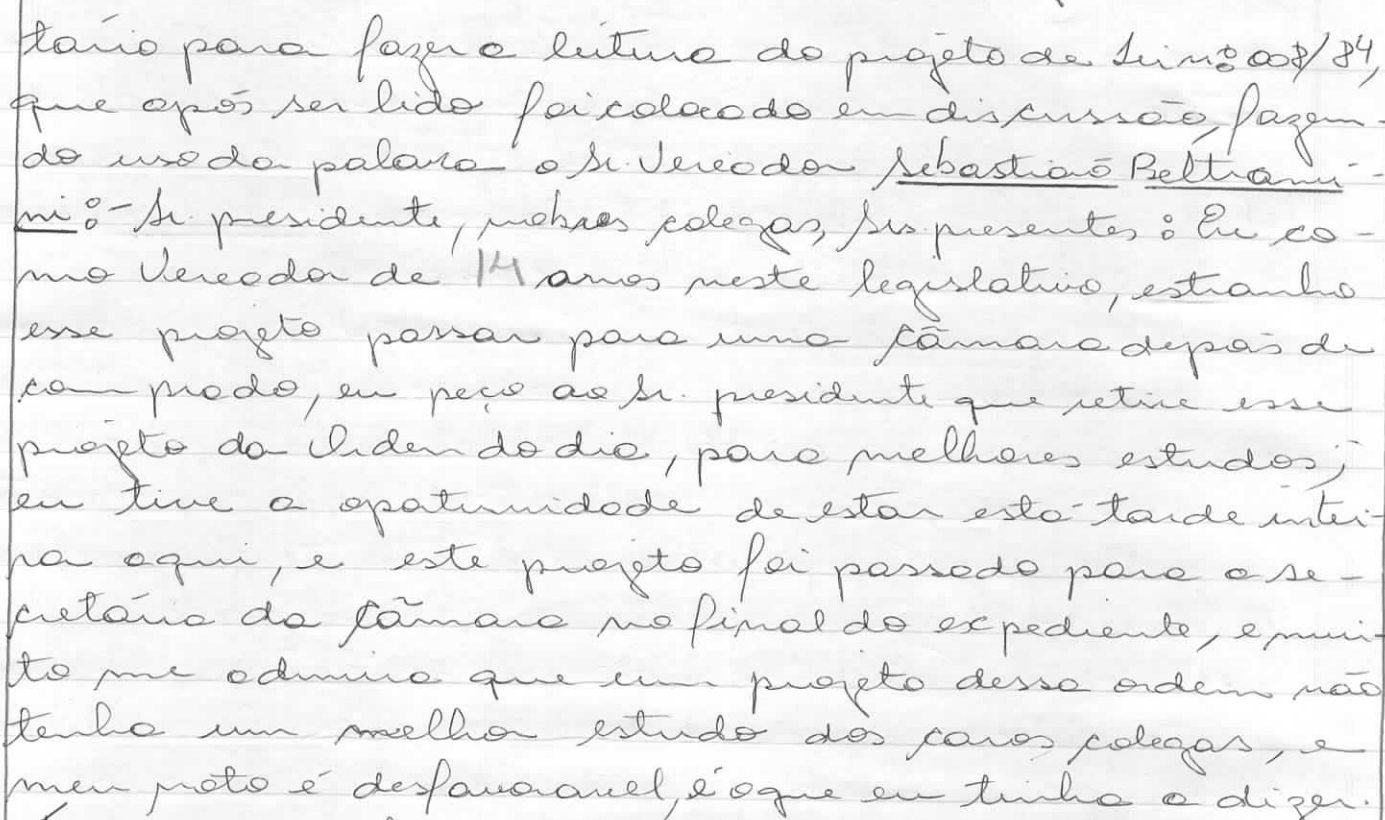 tário para fazer a leitura do projéto de Lei nº 008/84,
que após ser lido foi colocado em discussão, fazen-
do uso da palava o Sr. Vereador Sebastião Beltrami-
ni:- Sr. presidente, nobres colegas, Srs. presentes: Eu co-
mo Vereador de 14 anos neste legislativo, estranho
esse projeto passar para uma Câmara depois de
comprado, eu peço ao Sr. presidente que retire esse
projéto da Ordem do dia, para melhores estudos;
eu tive a oportunidade de estar esta tarde intei-
ra aqui, e este projeto foi passado para a se-
cretária da Câmara no final do expediente, e mui-
to me admira que um projeto dessa ordem não
tenha um melhor estudo dos caros colegas, e
meu voto é desfavoravel, é o que eu tinha a dizer.